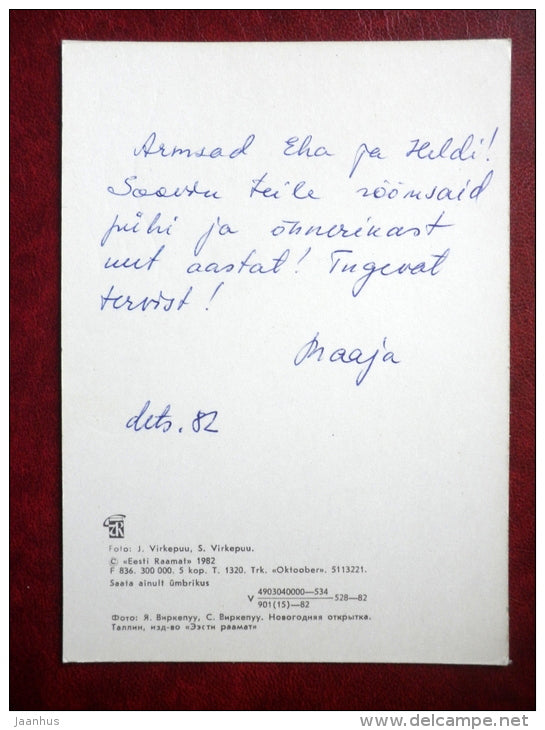 Armsad Eha ja Heldi!
Soovin teile rõõmsaid
pühi ja õnnerikast
uut aastat! Tugevat
tervist!
Maaja
dets. 82
Foto: J. Virkepuu, S. Virkepuu.
© «Eesti Raamat» 1982
F 836. 300 000. 5 kop. T. 1320. Trk. «Oktoober». 5113221.
Saata ainult ümbrikus
V 4903040000—534 / 901(15)—82 528—82
Фото: Я. Виркепуу, С. Виркепуу. Новогодняя открытка.
Таллин, изд-во «Ээсти раамат»
jaanhus
www.delcampe.net